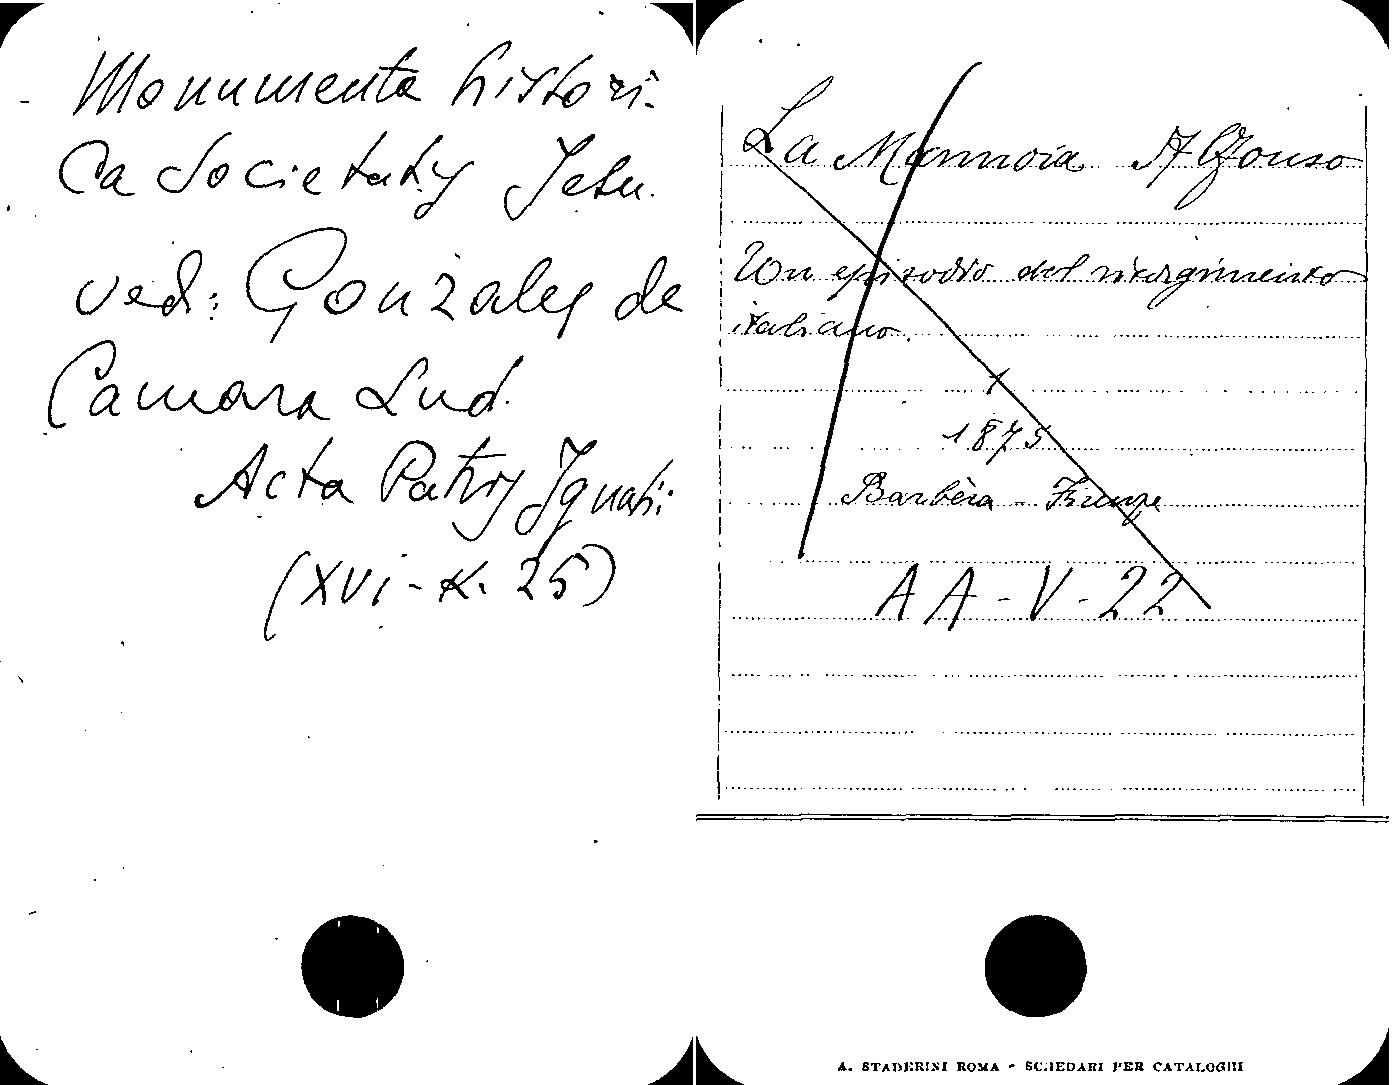 Monumenta histori-
ca Societatis Jesu.
ved: Gonzales de
Camara Lud.
Acta Patris Ignati:
(XVI - K. 25)
La Mannoia Alfonso
Un episodio del risorgimento
italiano.
1
1875
Barbèra - Firenze
AA - V - 22
A. STADERINI ROMA - SCHEDARI PER CATALOGHI